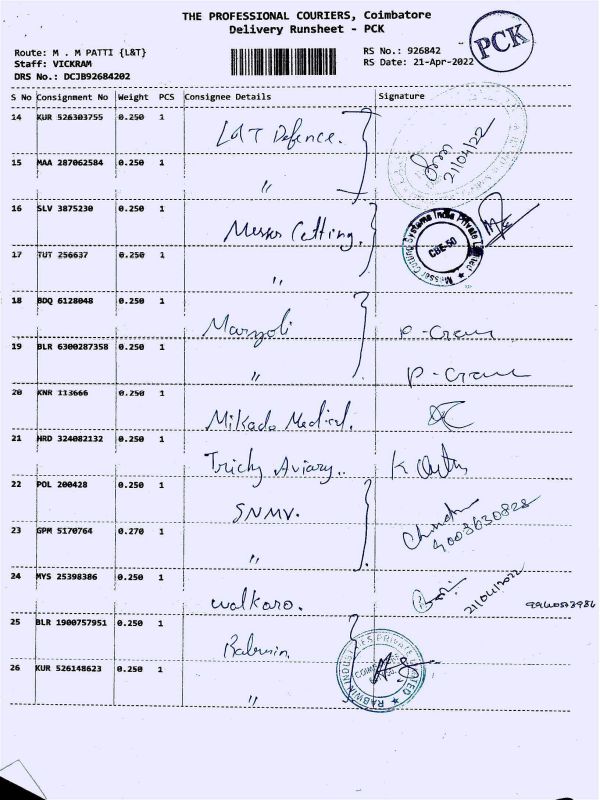 THE PROFESSIONAL COURIERS, Coimbatore
Delivery Runsheet - PCK
PCK
Route: M . M PATTI {L&T}
RS No.: 926842
Staff: VICKRAM
RS Date: 21-Apr-2022
DRS No.: DCJB92684202
S No Consignment No Weight PCS Consignee Details Signature
14 KUR 526303755 0.250 1 L&T Defence.
21/04/22
15 MAA 287062584 0.250 1 "
16 SLV 3875230 0.250 1 Messer Cutting.
Messer Cutting Systems India Private Limited
CBE-50
17 TUT 256637 0.250 1 "
18 BDQ 6128048 0.250 1 Marzoli
19 BLR 6300287358 0.250 1 "
20 KNR 113666 0.250 1 Mikado Medical.
21 HRD 324082132 0.250 1 Trichy Aviary..
22 POL 200428 0.250 1 SNMV.
23 GPM 5170764 0.270 1 "
24 MYS 25398386 0.250 1 walkaro.
21/04/2022
25 BLR 1900757951 0.250 1 Rabwin
RABWIN INDUSTRIES PRIVATE LIMITED
26 KUR 526148623 0.250 1 "